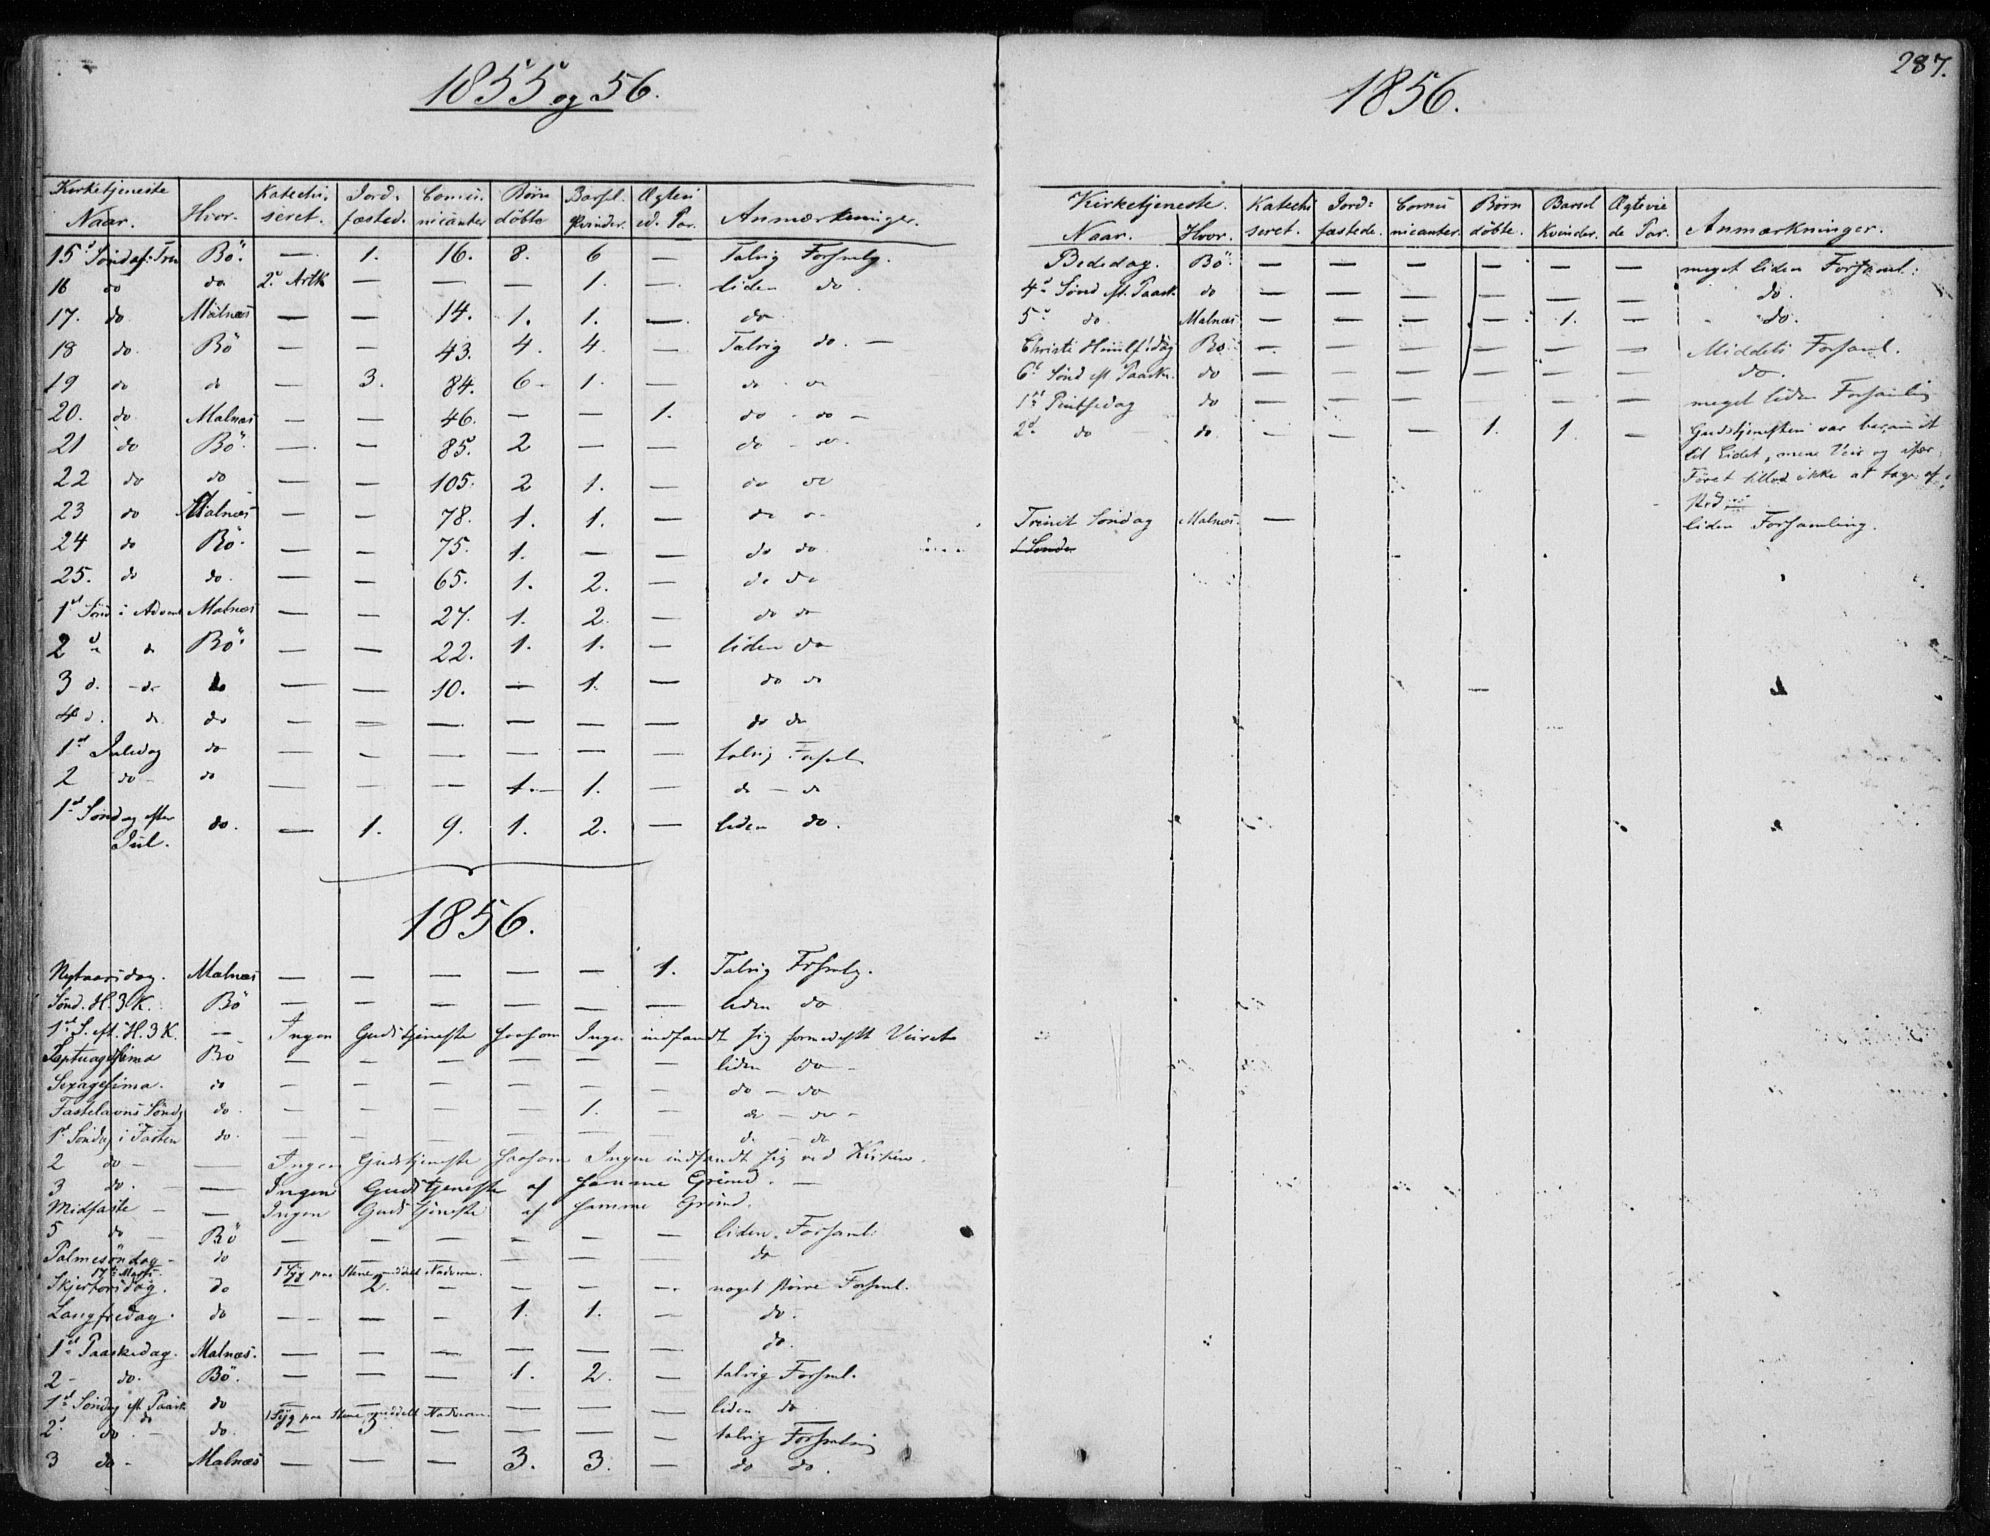 1855 og 56.
Kirketjeneste Naar. | Hvor. | Katechiseret. | Jordfæsted. | Comunicanter | Börn döbte | Barsel Qvinder. | Ægtevied. Par. | Anmærkninger.
15d Sönd. af. Trin | Bö. | — | 1. | 16. | 8. | 6 | — | Talrig Forsmlg.
16 do | do | 2d Artk | — | — | — | 1. | — | liden do.
17. do | Malnæs | — | — | 14. | 1. | 1. | — | do
18 do. | Bö | — | — | 43. | 4. | 4. | — | Talrig do. —
19 do | do | — | 3. | 84. | 6 - | 1. | — | do - do
20. do | Malnæs | — | — | 46. | — | — | 1. | do - do -
21 do | Bö. | — | — | 85. | 2 | — | — | do - do.
22 do | do | — | — | 105. | 2 | 1. | — | do do
23 do | Malnæs | — | — | 78. | 1. | 1. | — | do do
24 do | Bö. | — | — | 75. | 1. | — | — | do do
25. do | do. | — | — | 65. | 1. | 2. | — | do do
1st Sönd i Advent | Malnæs | — | — | 27. | 1. | 2. | — | do do
2d do | Bö. | — | — | 22. | 1. | 1. | — | liden do
3 d. - do - | do | — | — | 10. | — | 1. | — | do do
4 d. do. | do | — | — | — | — | — | — | do do
1st Juledag | do | — | — | — | — | — | — | talrig Forsaml
2 do - | do | — | — | — | 1. - | 1. | — | do - do
1st Söndag efter
Jul. | do. | — | 1. | 9. | 1. | 2. | — | liden do.
1856.
Nytaarsdag. | Malnæs | — | — | — | — | — | 1. | Talrig Forsmlg.
Sönd. H. 3 K. | Bö | — | — | — | — | — | — | liden do
1st S. eft. H. 3 K. | — | Ingen Gudstjeneste saasom Ingen indfandt sig formedelst Veiret
Septuagesima | Bö | — | — | — | — | — | — | liden do -
Sexagesima. | do | — | — | — | — | — | — | do - do
Fastelavns Söndg | do. | — | — | — | — | 1. | — | do - do -
1st Söndag i Fasten | do. | — | — | — | — | — | — | do - do
2 do - | — | Ingen Gudstjeneste saasom Ingen indfandt sig ved Kirken.
3 do. - | — | Ingen Gudstjeneste af samme Grund. —
Midfaste - | — | Ingen Gudstjeneste af samme Grund.
5 do | Bö | — | — | — | — | — | — | liden Forsaml.
Palmesöndag - | do | — | — | — | — | — | — | do
17de Marts. | 1 Syg paa Stene meddelt Nadveren.
Skjertorsdag. | do | — | 2. | — | — | — | — | noget större Forsml.
Langfredag. | do | — | — | — | 1. | 1. | — | do.
1st Paaskedag. | Malnæs. | — | — | — | — | — | — | do.
2 - do. | Bö. | — | — | — | 1. | 2. | — | talrig Forsml.
1st Söndag eft Paask | do | — | — | — | — | — | — | liden do
do | 1 Syg paa Stene meddelt Nadveren.
2d do. - | do. | — | 3 | — | — | — | — | talrig Forsamling
3 do - | Malnæs | — | — | — | 3. | 3. | — | do do.
287.
1856.
Kirketjeneste. Naar. | Hvor. | Katechiseret. | Jordfæstede. | Comunicanter. | Börn döbte. | Barsel Kvinder. | Ægteviede Par. | Anmærkninger.
Bededag. | Bö. | — | — | — | — | — | — | meget liden Forsaml:
4d Sönd eft. Paask. | do | — | — | — | — | — | — | do.
5d do. | Malnæs | — | — | — | — | 1. | — | do.
Christi Himlf:dag | Bö. | — | — | — | — | — | — | Middels Forsaml.
6d Sönd eft Paask. | do | — | — | — | — | — | — | do.
1st Pintsedag | do | — | — | — | — | — | — | meget liden Forsamling
2d do | do. | — | — | — | 1. | 1. | — | Gudstjenesten var berammet
til Eidet, men Veir og især
Föret tillod ikke at tage af
sted.
Trinit Söndag | Malnæs. | — | liden Forsamling.